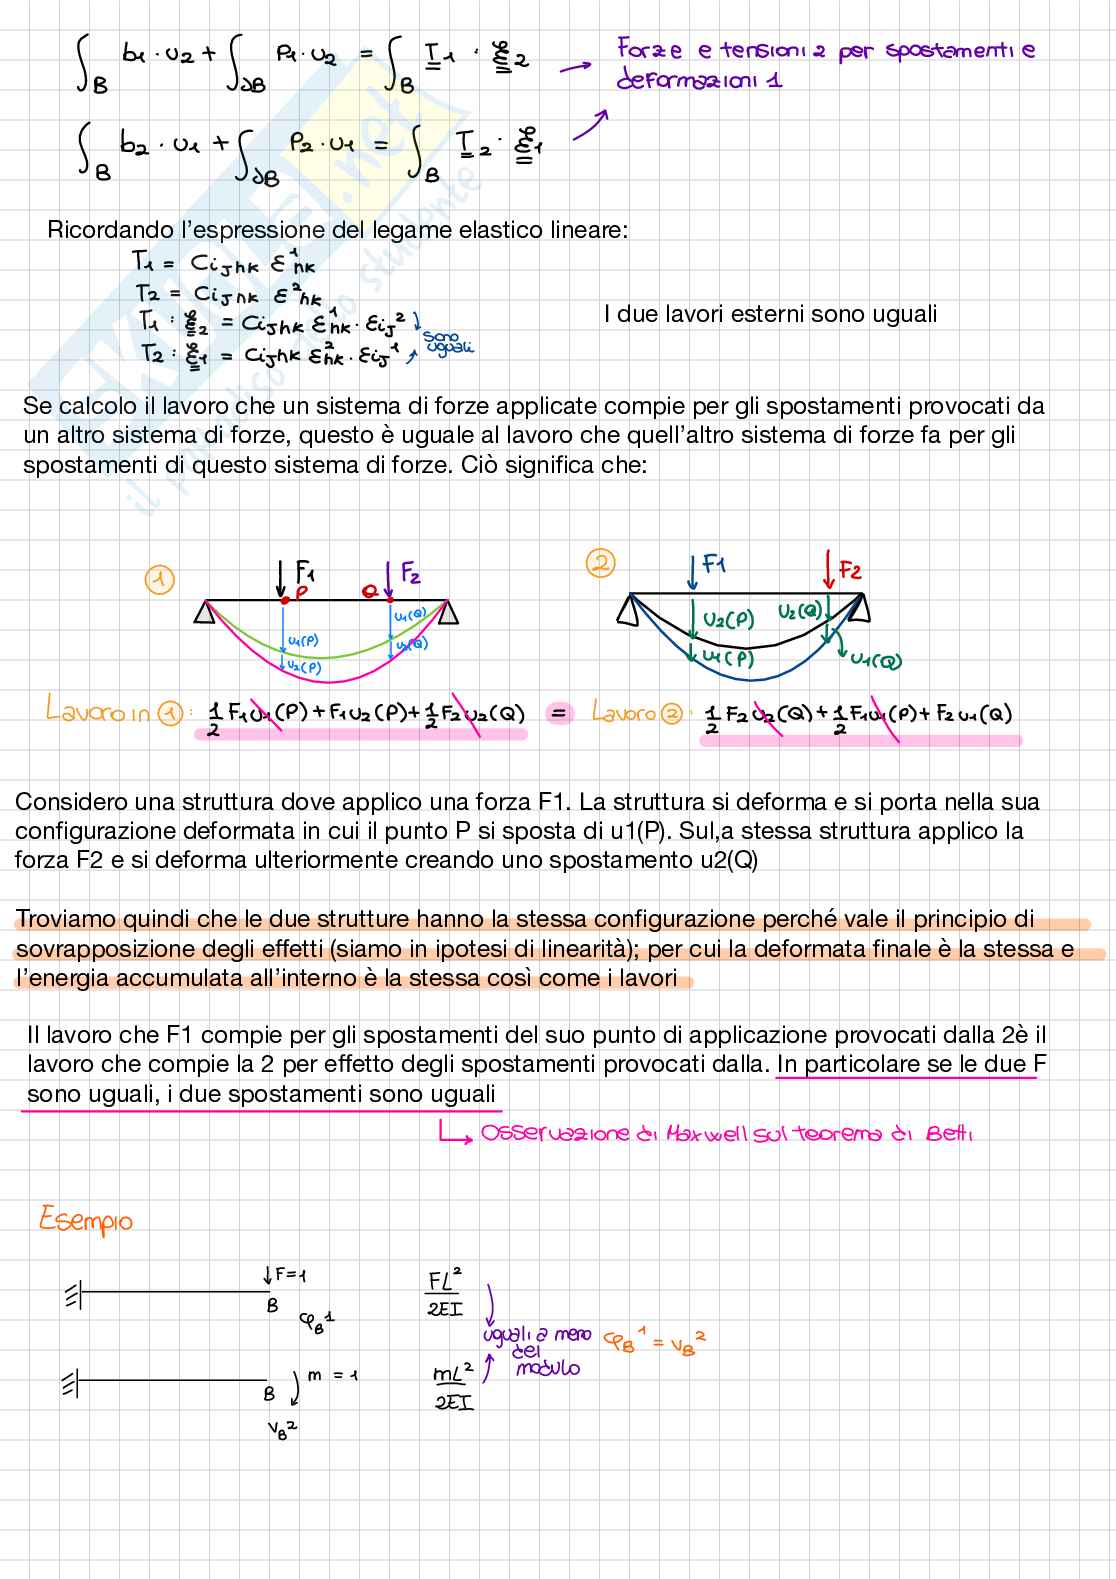 ∫_B b1 · u2 + ∫_∂B P1 · u2 = ∫_B T1 · ε2
Forze e tensioni 2 per spostamenti e
deformazioni 1
∫_B b2 · u1 + ∫_∂B P2 · u1 = ∫_B T2 · ε1
Ricordando l'espressione del legame elastico lineare:
T1 = Cijhk ε¹hk
T2 = Cijhk ε²hk
T1 : ε2 = Cijhk ε¹hk · εij²
T2 : ε1 = Cijhk ε²hk · εij¹
sono
uguali
I due lavori esterni sono uguali
Se calcolo il lavoro che un sistema di forze applicate compie per gli spostamenti provocati da
un altro sistema di forze, questo è uguale al lavoro che quell'altro sistema di forze fa per gli
spostamenti di questo sistema di forze. Ciò significa che:
1 F1 P Q F2
u1(P) u1(Q)
u2(P) u2(Q)
2 F1 F2
u2(P) u2(Q)
u1(P) u1(Q)
Lavoro in 1: 1/2 F1u1(P) + F1u2(P) + 1/2 F2u2(Q) = Lavoro 2: 1/2 F2u2(Q) + 1/2 F1u1(P) + F2u1(Q)
Considero una struttura dove applico una forza F1. La struttura si deforma e si porta nella sua
configurazione deformata in cui il punto P si sposta di u1(P). Sul,a stessa struttura applico la
forza F2 e si deforma ulteriormente creando uno spostamento u2(Q)
Troviamo quindi che le due strutture hanno la stessa configurazione perché vale il principio di
sovrapposizione degli effetti (siamo in ipotesi di linearità); per cui la deformata finale è la stessa e
l'energia accumulata all'interno è la stessa così come i lavori
Il lavoro che F1 compie per gli spostamenti del suo punto di applicazione provocati dalla 2è il
lavoro che compie la 2 per effetto degli spostamenti provocati dalla. In particolare se le due F
sono uguali, i due spostamenti sono uguali
Osservazione di Maxwell sul teorema di Betti
Esempio
F=1
B
φB¹
FL²/2EI
uguali a meno
del
modulo
φB¹ = vB²
B
m = 1
vB²
mL²/2EI
SKUOLA.net
il paradiso dello studente